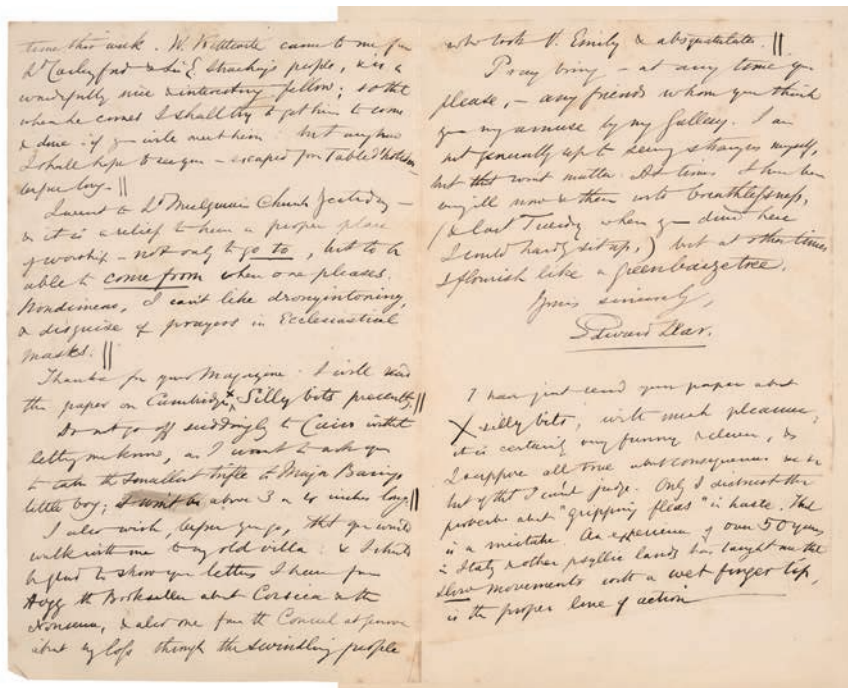 time this week. W. came to me from
Ld. & Sir E. Strachey's people, & is a
wonderfully nice & interesting fellow; so that
when he comes I shall try to get him to come
& dine if you will meet him. but anyhow
I shall hope to see you — escaped from Table d'hotism
before long. ||
I went to Church yesterday —
& it is a relief to have a proper place
of worship — not only to go to, but to be
able to come from when one pleases.
Nondimeno, I can't like dronyintoning,
& disguise of prayers in Ecclesiastical
masks. ||
Thanks for your Magazine. I will read
the paper on Cambridge X Silly bits presently. ||
Do not go off suddingly to Cairo without
letting me know, as I want to ask you
to take the smallest trifle to Major Barings
little boy; it won't be above 3 or 4 inches long ||
I also wish, before you go, that you would
walk with me to my old villa: & I should
be glad to show you letters I have from
Hogg the Bookseller about Corsica & the
Nonsense, & also one from the Consul at Genova
about my loss through the swindling people
who took V. Emily & absquatulated. ||
Pray bring — at any time you
please, — any friends whom you think
you may amuse by my Gallery. I am
not generally up to seeing strangers myself,
but that won't matter. At times I have been
very ill now & then with breathlessness,
(& last Tuesday when you dined here
I could hardly sit up,) but at other times
I flourish like a greenbaizetree.
Yours sincerely,
Edward Lear.
I have just read your paper about
X silly bits, with much pleasure;
it is certainly very funny &
I suppose all true about consequences
but of that I can't judge. Only I distrust the
proverb about "gripping fleas" in haste. That
is a mistake. An experience of over 50 years
in Italy & other psyllic lands has taught me that
slow movements with a wet finger tip,
is the proper line of action